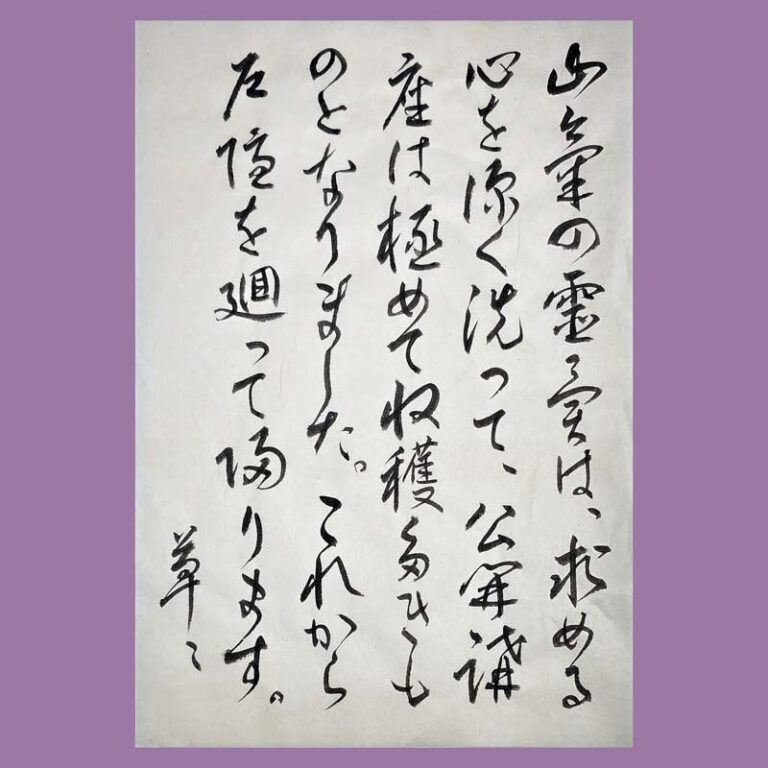 山氣の靈は、求める
心を深く洗って、公開講
座は極めて収穫多きも
のとなりました。これから
戸隠を廻って帰ります。
草々